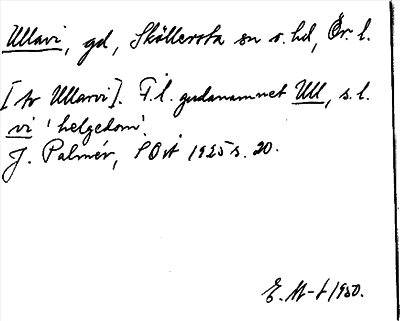 Ullavi, gd, Sköllersta sn o. hd, Ör. l.
[är Ullarvi]. T.l. gudanamnet Ull, s.l.
vi 'helgedom'.
J. Palmér, SOÅ 1925 s. 20.
E. M-t 1950.